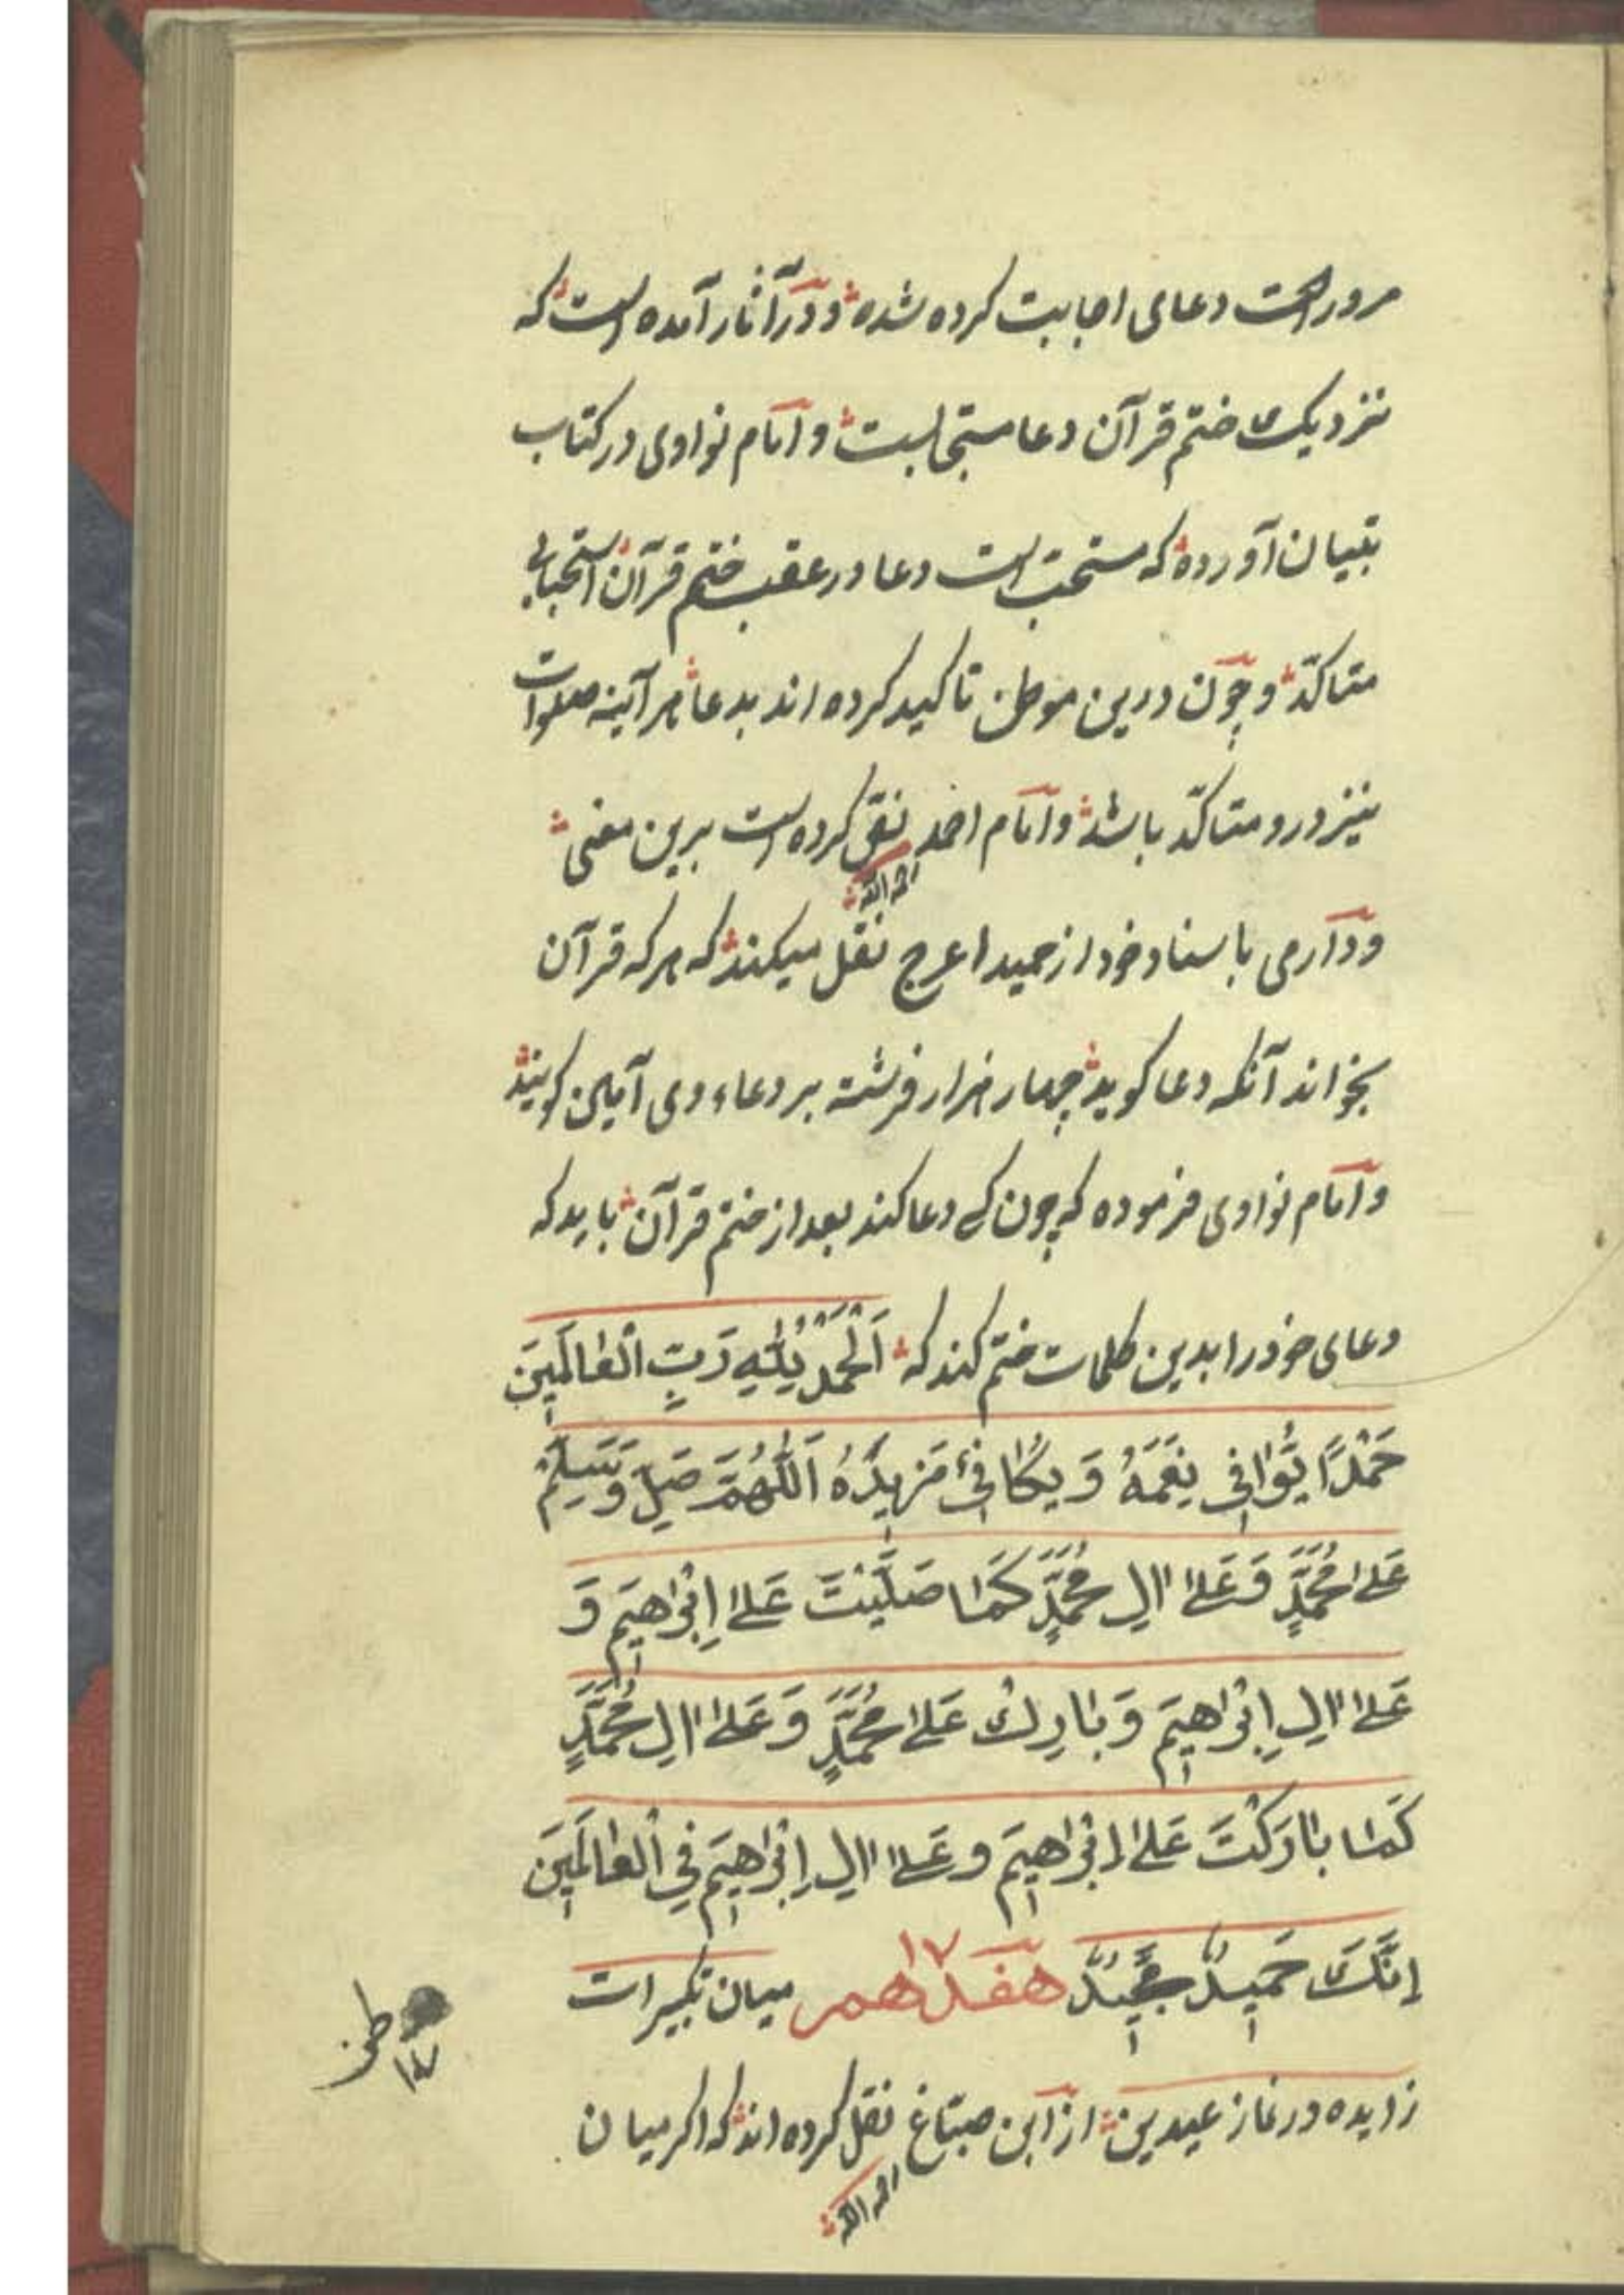 مروراست دعای اجابت کرده شده و در آثار آمده است که
نزدیک ختم قرآن دعا مستجابست و امام نواوی در کتاب
تبیان آورده که مستحب است دعا در عقب ختم قرآن استحبابی
متاکّد و چون درین موطن تاکید کرده اند بدعا هرآینه صلوات
نیز درو متاکّد باشد و امام احمد نقل کرده است برین معنی
رحمه الله
و دارمی باسناد خود از حمید اعرج نقل میکند که هر که قرآن
بخواند آنکه دعا کوید چهار هزار فرشته بر دعاء وی آمین کویند
و امام نواوی فرموده که چون کسی دعا کند بعد از ختم قرآن باید که
دعای خود را بدین کلمات ختم کند که اَلْحَمْدُ لِلّٰهِ رَبِّ الْعٰالَمِینَ
حَمْدًا یُوٰافِی نِعَمَهُ وَ یُکٰافِئُ مَزِیدَهُ اَللّٰهُمَّ صَلِّ وَ سَلِّمْ
عَلیٰ مُحَمَّدٍ وَ عَلیٰ اٰلِ مُحَمَّدٍ کَمٰا صَلَّیْتَ عَلیٰ اِبْرٰاهِیمَ وَ
عَلیٰ اٰلِ اِبْرٰاهِیمَ وَ بٰارِكْ عَلیٰ مُحَمَّدٍ وَ عَلیٰ اٰلِ مُحَمَّدٍ
کَمٰا بٰارَکْتَ عَلیٰ اِبْرٰاهِیمَ وَ عَلیٰ اٰلِ اِبْرٰاهِیمَ فِی الْعٰالَمِینَ
اِنَّكَ حَمِیدٌ مَجِیدٌ هفدهم ۱۷ میان تکبیرات
زایده در نماز عیدین از ابن صبّاغ نقل کرده اند که اکر میان
رحمه الله
۱۷